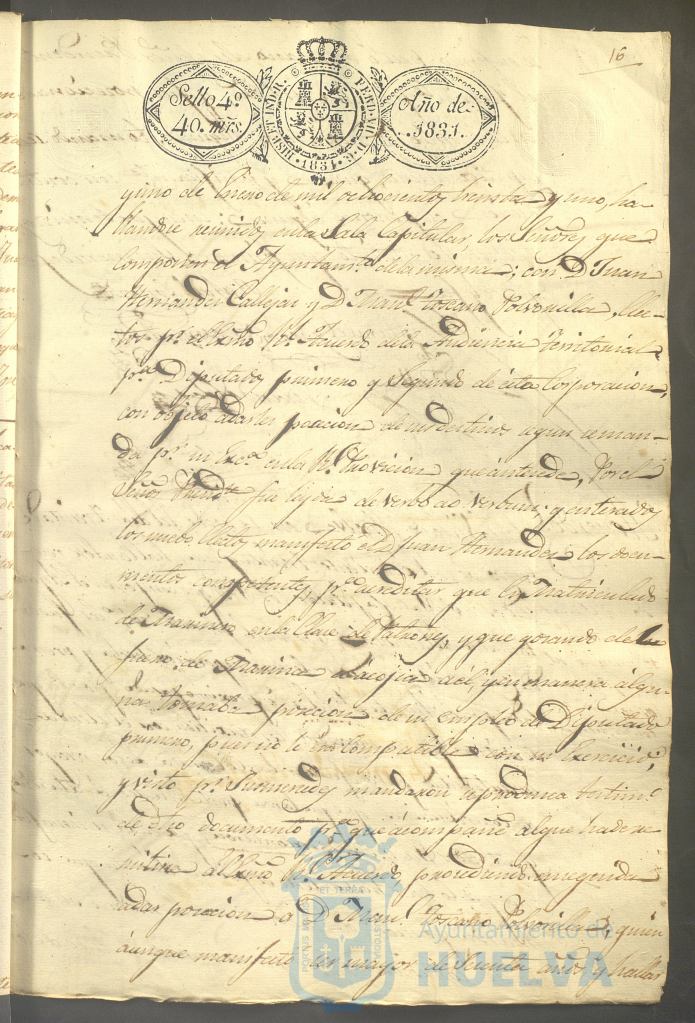 16
Sello 4º
40. mrs.
HISP. ET IND. R. FERD. VII. D. G.
1831.
Año de
1831.
yuno de Enero de mil ochocientos treinta y uno, ha
llandose reunidos en la Sala Capitular, los Señores que
componen el Ayuntamto. de la misma; con D. Juan
Hernandez Callejas y D. Manl. Toscano Polvorilla, Elec-
tos pr. el Exmo. Rl. Acuerdo de la Audiencia territorial
pra. Diputados primero y Segundo de esta Corporacion,
con objeto a darles posecion de sus destinos segun se man-
da pr. su Exca. en la Rl. Provicion que antecede, Por el
Señor Presidte. fue leyda de verbo ad verbum; y enterados
los nuebos Electos manifestó el D. Juan Hernandez los docu-
mentos competentes, pa. acreditar que es Matriculado
de Marina en la Clase de Patrones, y que gozando de
fuero de Marina se acojia a el, y en manera algu-
na tomaba posecion de su empleo de Diputado
primero, pues no le era Compatible con su Exercicio;
y visto pr. Sus mercedes mandaron se produzca testimo.
de dho documento pa. que acompañe al que ha de re
mitirse al Exmo. Rl. Acuerdo, procediendo en seguida
a dar posecion a D. Manl. Toscano Polvorilla, quien
aunque manifestó ser mayor de Sesenta años y hallar
PORTUS MARIS ET TERRAE CUSTODIA
Ayuntamiento de
HUELVA